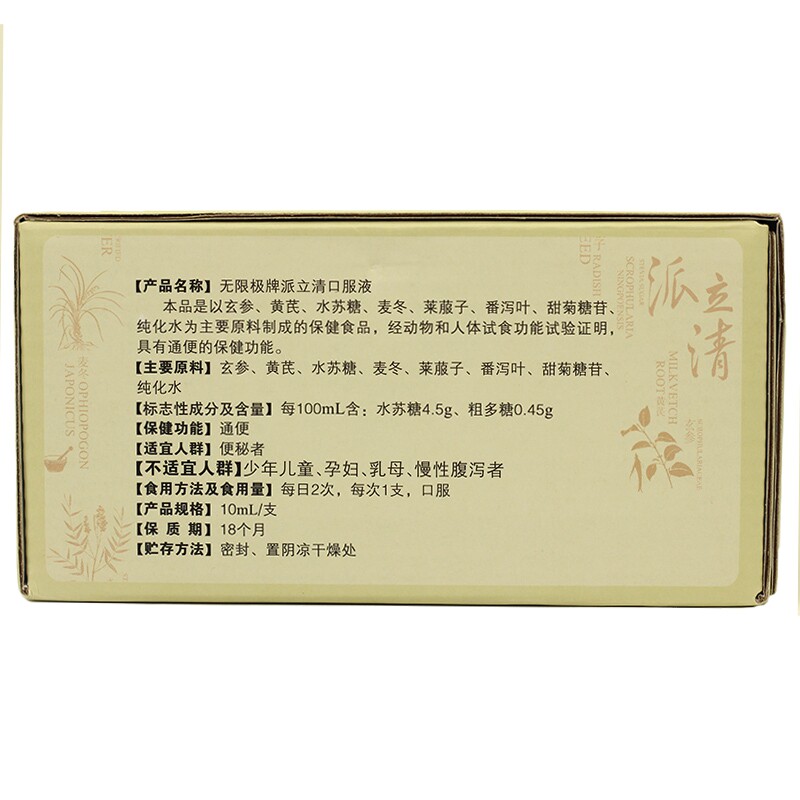 【产品名称】无限极牌派立清口服液
本品是以玄参、黄芪、水苏糖、麦冬、莱菔子、番泻叶、甜菊糖苷、
纯化水为主要原料制成的保健食品，经动物和人体试食功能试验证明，
具有通便的保健功能。
【主要原料】玄参、黄芪、水苏糖、麦冬、莱菔子、番泻叶、甜菊糖苷、
纯化水
【标志性成分及含量】每100mL含：水苏糖4.5g、粗多糖0.45g
【保健功能】通便
【适宜人群】便秘者
【不适宜人群】少年儿童、孕妇、乳母、慢性腹泻者
【食用方法及食用量】每日2次，每次1支，口服
【产品规格】10mL/支
【保 质 期】18个月
【贮存方法】密封、置阴凉干燥处
派立清
麦冬 OPHIOPOGON
JAPONICUS
ER
子 RADISH
EED
SCROPHULARIA
NINGPOENSIS
MILKVETCH
ROOT 黄芪
玄参